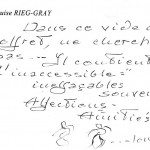 uise RIEG-GRAY
Dans ce vide
coffret, ne cherch
pas... Il contient
l'"inaccessible":
ineffaçables
souve
Affections.
Amitiés